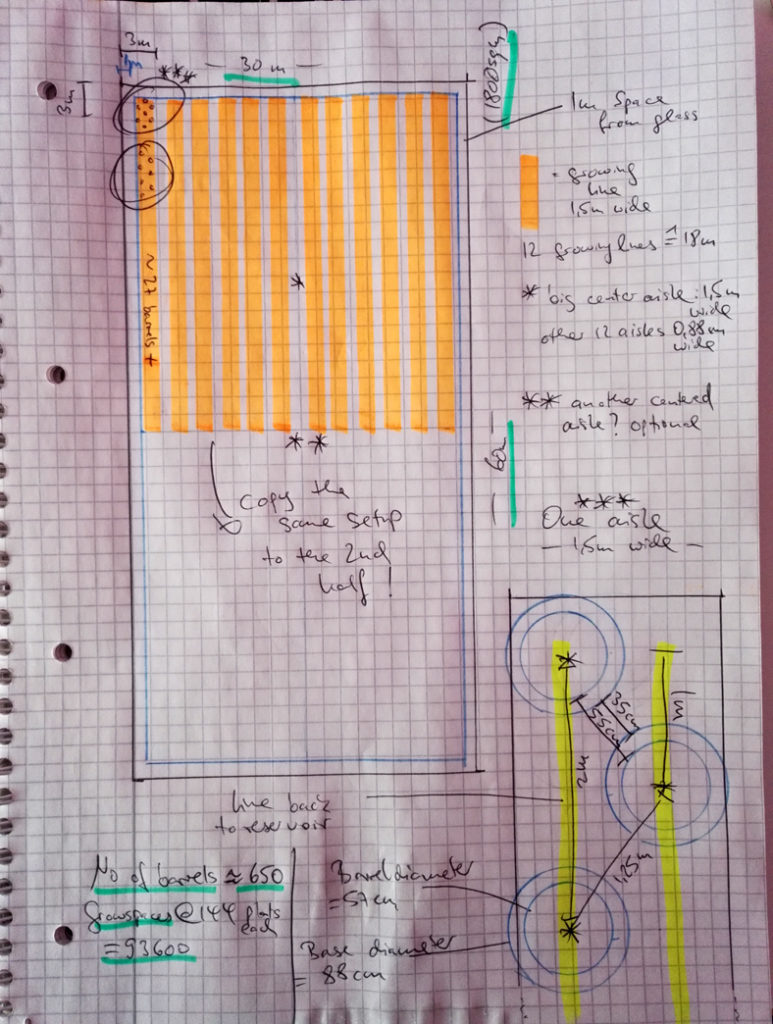 3m
1m
***
— 30 m —
(1800sqm)
3m
1m space
from glass
- growing
line
1,5m wide
12 growing lines ≙ 18m
* big center aisle: 1,5m
wide
other 12 aisles 0,88m
wide
*
~ 27 barrels +
** another centered
aisle? optional
**
— 60m —
***
One aisle
— 1,5m wide —
Copy the
same setup
to the 2nd
half!
35cm
55cm
1m
2m
1,25m
line back
to reservoir
No of barrels ≈ 650
Growspaces @ 144 plants
each
= 93600
Barreldiameter
= 57cm
Base diameter
= 88cm